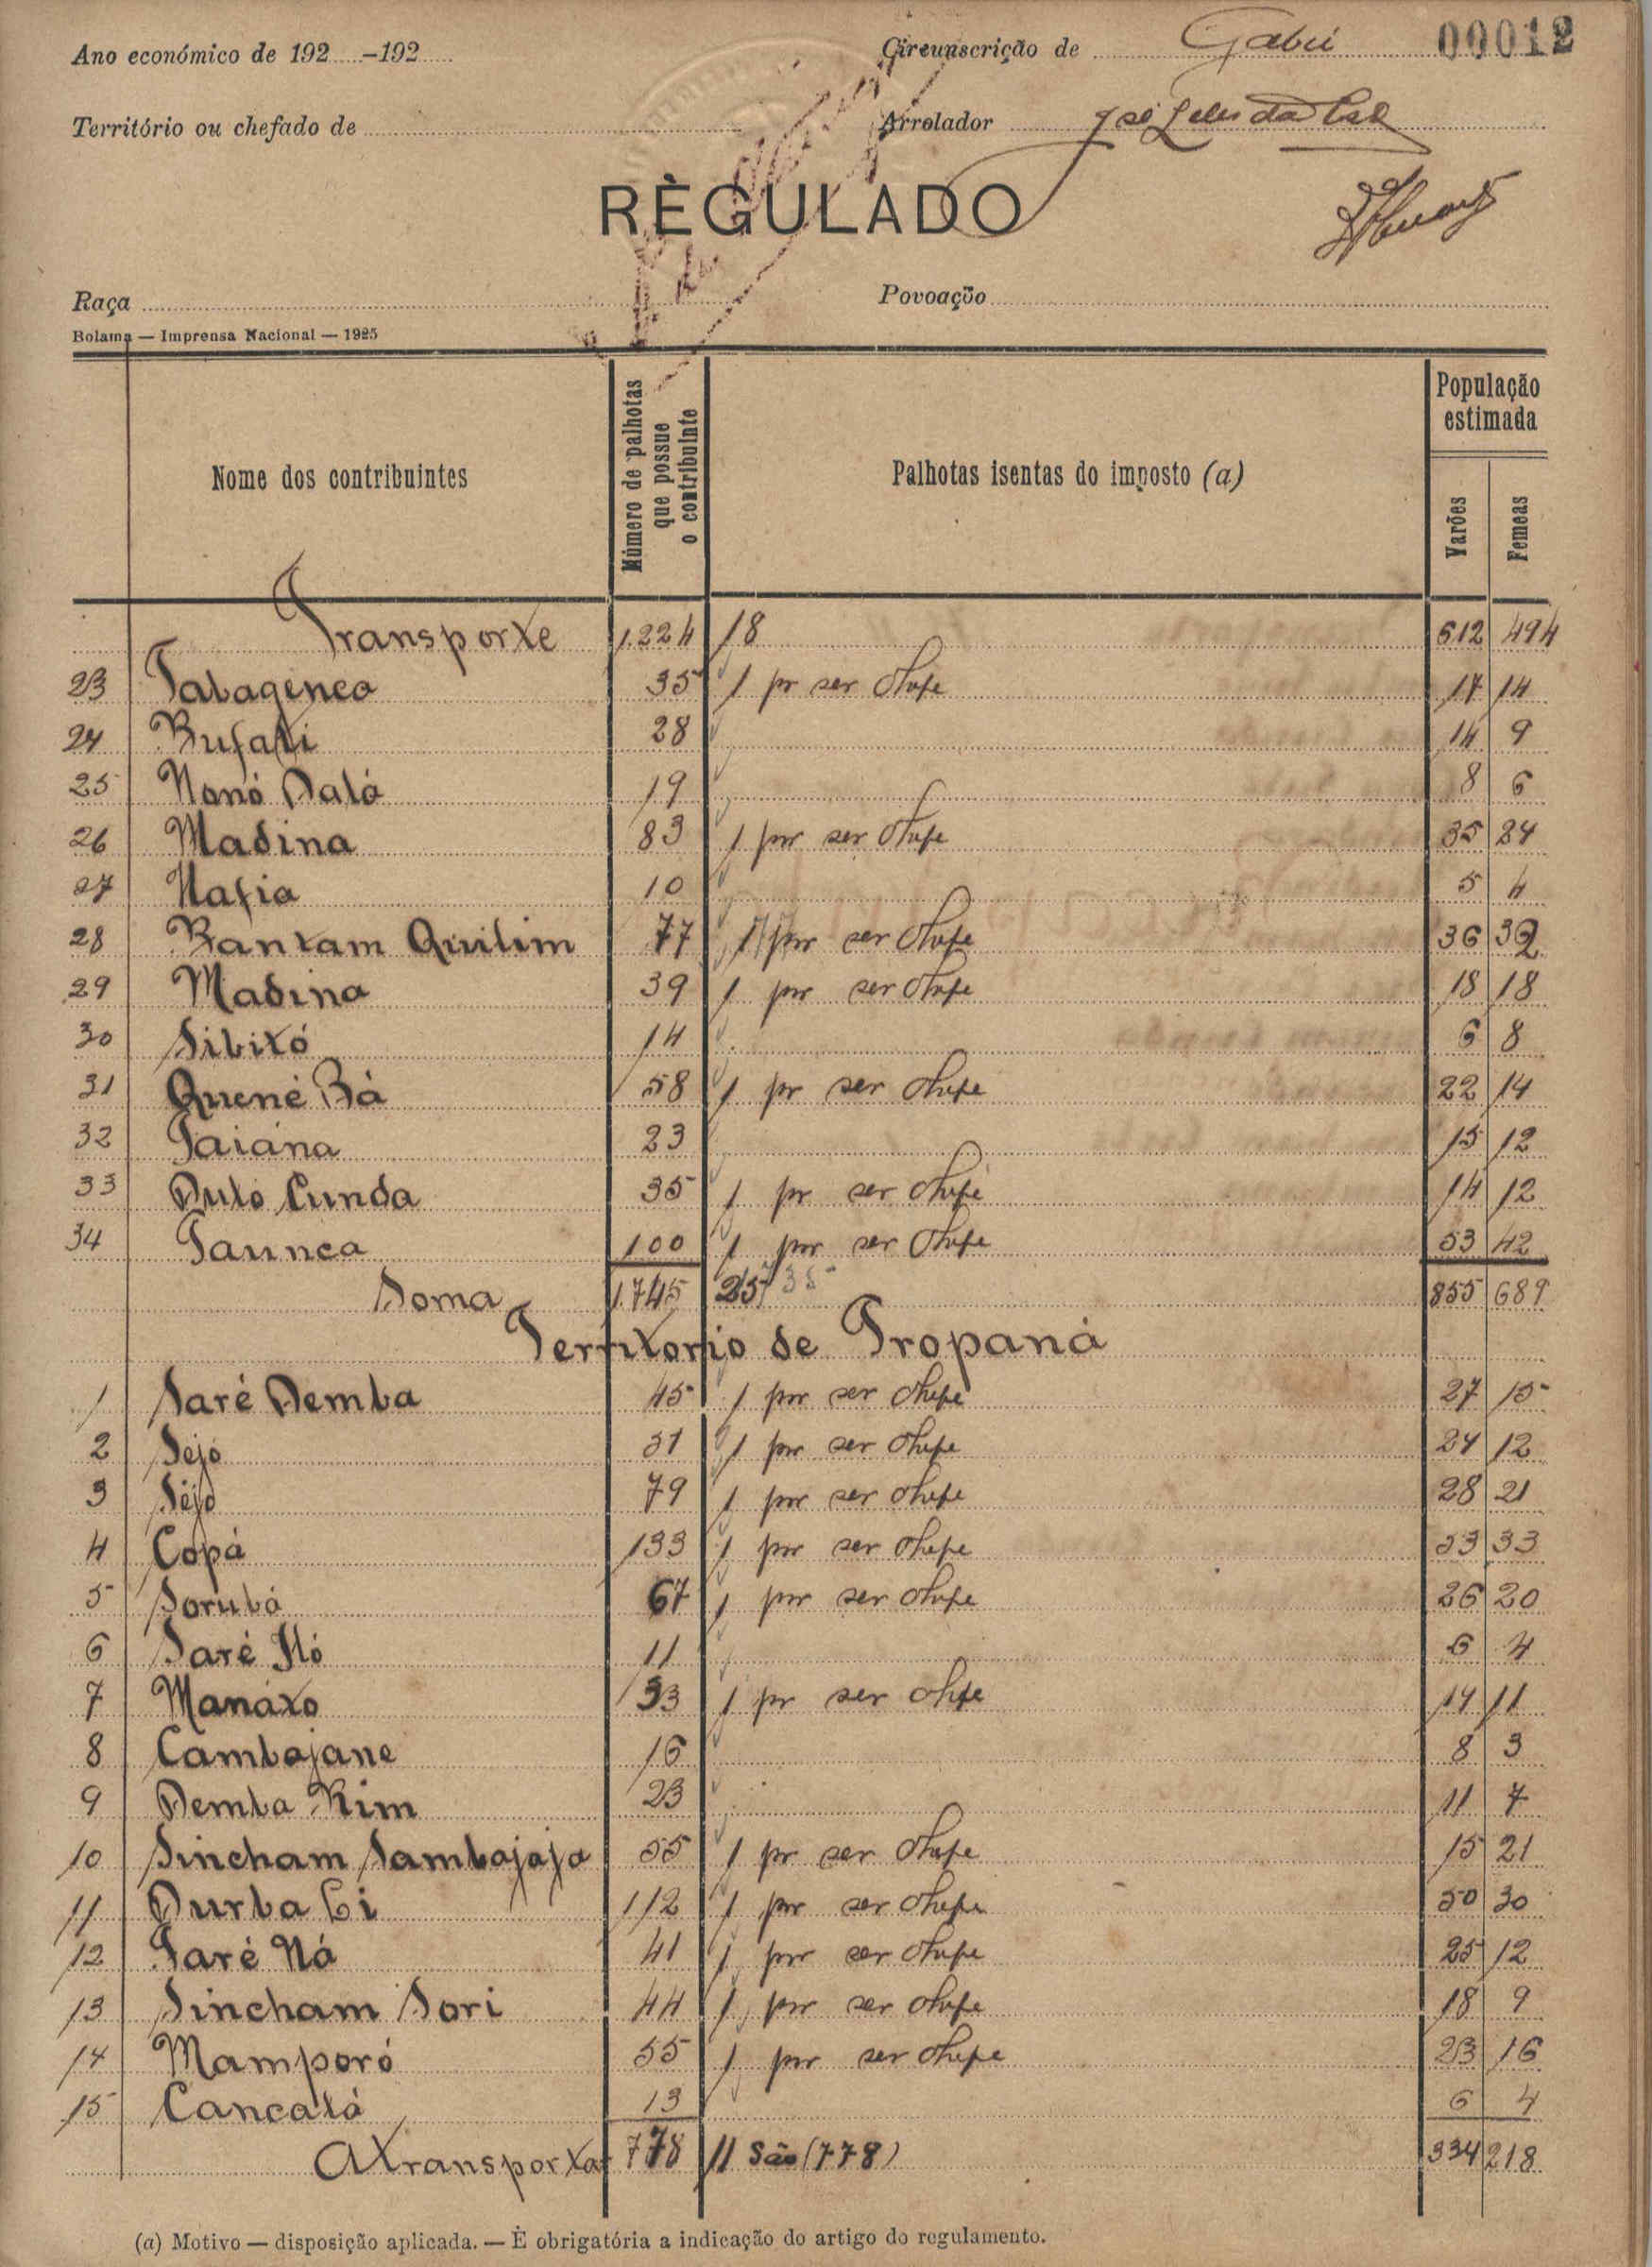 Ano económico de 192 -192
Circunscrição de Gabú
00012
Território ou chefado de
Arrolador
RÈGULADO
Raça
Povoação
Bolama — Imprensa Nacional — 1925
Nome dos contribuintes
Número de palhotas que possue o contribuinte
Palhotas isentas do imposto (a)
População estimada
Varões
Femeas
Transporte 1.224 18 612 494
23 Tabagenca 35 1 pr ser chefe 17 14
24 Bufati 28 14 9
25 Nonó Dalá 19 8 6
26 Madina 83 1 por ser chefe 35 24
27 Nafia 10 5 4
28 Bantam Quilim 77 1 por ser chefe 36 32
29 Madina 39 1 por ser chefe 18 18
30 Sibitó 14 6 8
31 Quené Bá 58 1 pr ser chefe 22 14
32 Taiána 23 15 12
33 Dulo Cunda 35 1 pr ser chefe 14 12
34 Taunca 100 1 por ser chefe 53 42
Soma 1.745 25 855 689
Territorio de Propaná
1 Saré Demba 45 1 por ser chefe 27 15
2 Sejó 51 1 por ser chefe 24 12
3 Sejó 79 1 por ser chefe 28 21
4 Copá 133 1 por ser chefe 53 33
5 Sorubá 67 1 por ser chefe 26 20
6 Saré Iló 11 6 4
7 Manáto 33 1 pr ser chfe 14 11
8 Cambajane 16 8 3
9 Demba Rim 23 11 7
10 Sincham Sambajaja 55 1 pr ser chefe 15 21
11 Durba Li 112 1 por ser chefe 50 30
12 Saré Ná 41 1 por ser chefe 25 12
13 Sincham Sori 44 1 por ser chefe 18 9
14 Mamporó 55 1 por ser chefe 23 16
15 Cancalá 13 6 4
A transportar 778 11 São (778) 334 218
(a) Motivo — disposição aplicada. — É obrigatória a indicação do artigo do regulamento.